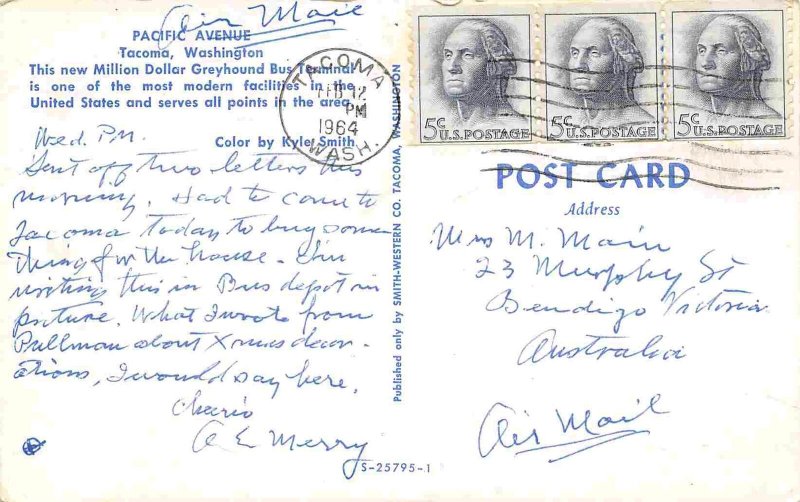 Air Mail
PACIFIC AVENUE
Tacoma, Washington
This new Million Dollar Greyhound Bus Terminal
is one of the most modern facilities in the
United States and serves all points in the area.
Color by Kyler Smith
TACOMA
FEB 12
PM
1964
WASH.
5c U.S. POSTAGE
5c U.S. POSTAGE
5c U.S. POSTAGE
Wed. P.M.
Sent off two letters this
morning. Had to come to
Tacoma today to buy some
thing for the house. I'm
writing this in Bus depot in
picture. What I wrote from
Pullman about Xmas decor-
ations, I would say here.
Cheerio
A E Merry
Published only by SMITH-WESTERN CO. TACOMA, WASHINGTON
S-25795-1
POST CARD
Address
Mrs M. Main
23 Murphy St
Bendigo Victoria
Australia
Air Mail